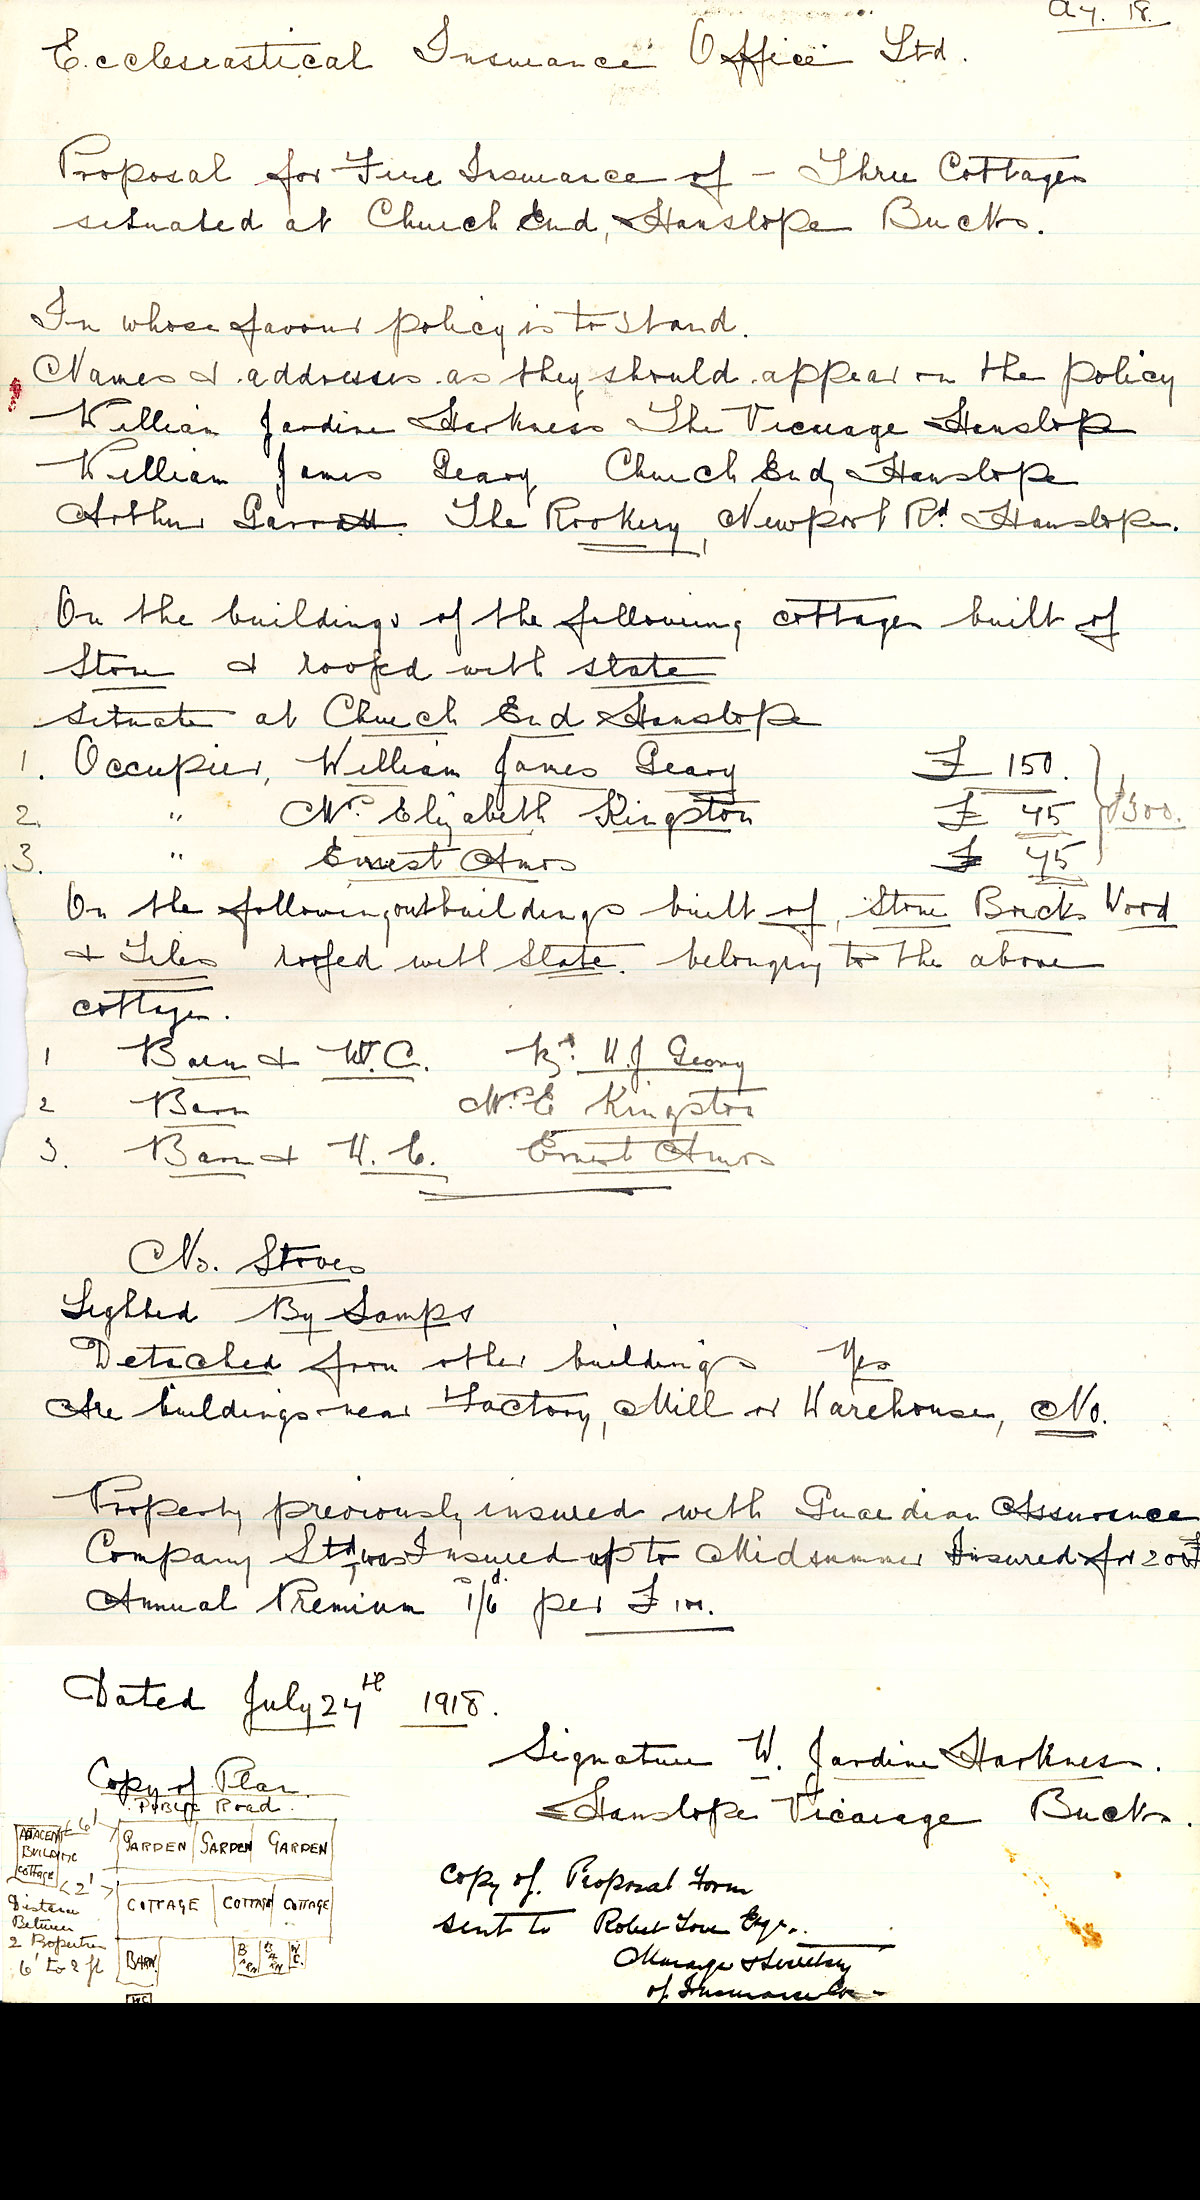 Ay. 18.
Ecclesiastical Insurance Office Ltd.
Proposal for Fire Insurance of – Three Cottages
situated at Church End, Hanslope Bucks.
In whose favour policy is to stand.
Names & addresses as they should appear on the policy
William Jardine Harkness The Vicarage Hanslope
William James Geary Church End, Hanslope
Arthur Garratt. The Rookery, Newport Rd. Hanslope.
On the buildings of the following cottages built of
Stone & roofed with slate
situate at Church End Hanslope
1. Occupier, William James Geary £ 150.
2. " Mrs Elizabeth Kingston £ 75 £300.
3. " Ernest Amos £ 75
On the following outbuildings built of, Stone Bricks Wood
& Tiles roofed with Slate. belonging to the above
cottages.
1 Barn & W.C. W.J Geary
2 Barn Mrs E Kingston
3. Barn & W.C. Ernest Amos
No. Stoves
Lighted By Lamps
Detached from other buildings Yes
Are buildings near Factory, Mill or Warehouse, No.
Property previously insured with Guardian Assurance
Company Ltd, was Insured up to Midsummer Insured for 200£
Annual Premium 1s/6d. per £100.
Dated July 24th 1918.
Signature W. Jardine Harkness.
Hanslope Vicarage Bucks.
Copy of Plan.
Public Road.
Adjacent Building Cottage
6'
Garden Garden Garden
2'
Cottage Cottage Cottage
Distance
Between
2 Properties
6' to 2 ft
Barn Barn Barn W.C.
WC
Copy of Proposal Form
sent to Robert Esqr.
Manager & Secretary
of Insurance Co–